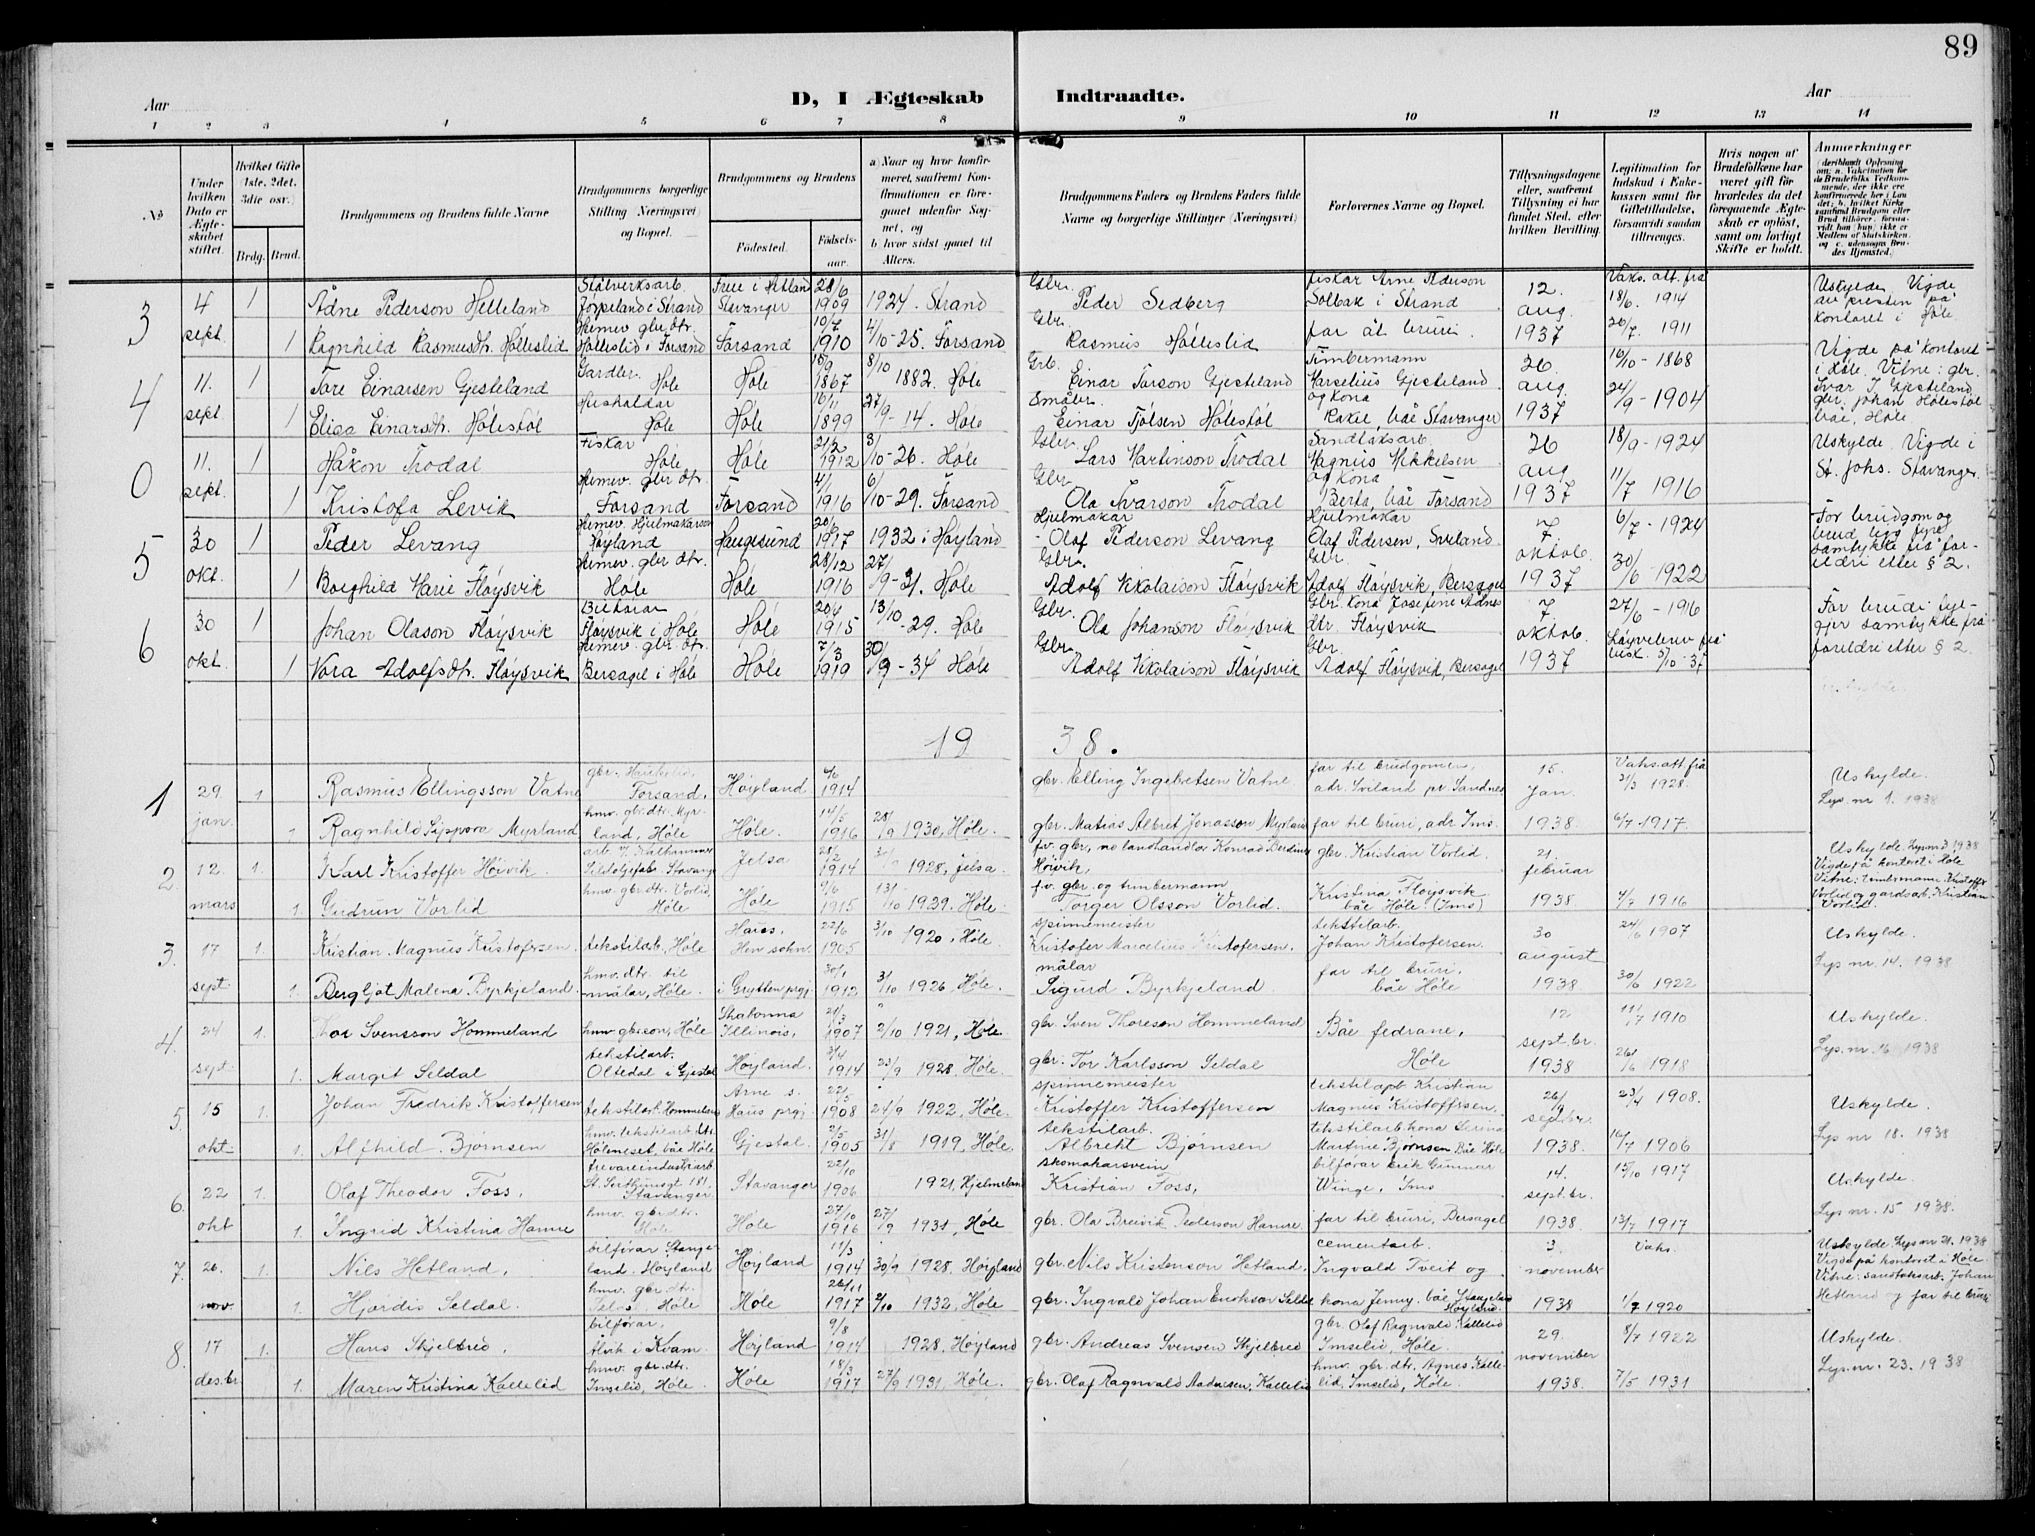 89
Aar
D, I Ægteskab Indtraadte.
Aar
1 2 3 4 5 6 7 8 9 10 11 12 13 14
No
Under hvilken Dato er Ægteskabet stiftet.
Hvilket Gifte (1ste, 2det, 3die osv.)
Brdg. Brud.
Brudgommens og Brudens fulde Navne
Brudgommens borgerlige Stilling (Næringsvei) og Bopæl.
Brudgommens og Brudens
Fødested.
Fødselsaar.
a) Naar og hvor konfirmeret, saafremt Konfirmationen er foregaaet udenfor Sognet, og
b) hvor sidst gaaet til Alters.
Brudgommens Faders og Brudens Faders fulde Navne og borgerlige Stillinger (Næringsvei)
Forlovernes Navne og Bopæl.
Tillysningsdagene eller, saafremt Tillysning ei har fundet Sted, efter hvilken Bevilling.
Legitimation for Indskud i Enkekassen samt for Giftetilladelse, forsaavidt saadan tiltrænges.
Hvis nogen af Brudefolkene har været gift før hvorledes da det foregaaende Ægteskab er opløst, samt om lovligt Skifte er holdt.
Anmerkninger
3 4 sept. 1 Ådne Pederson Helleland Stålverksarb. Jørpeland i Strand Stavanger 28/6 1909 1924. Strand Gbr. Peder Sedberg fiskar Arne Pederson Solbak i Strand 12. aug. 1937 Vaks. att. frå 18/6. 1914 Uskylde. Vigde av presten på kontoret i Høle
1 Ragnhild Rasmusdtr. Hølleslid Heimev. gbr. dtr. Hølleslid i Forsand Forsand 10/7 1910 4/10-25. Forsand Gbr. Rasmus Hølleslid far åt bruri. 20/7. 1911
4 11. sept. 1 Tore Einarsen Gjesteland Gardbr. Høle Høle 1867 8/10 1882. Høle Grb. Einar Torson Gjesteland Timbermann Marselius Gjesteland og kona Rakel, båe Stavanger 26. aug. 1937 16/10-1868 Vigde på kontoret i Høle. Vitne: gbr. Ivar T. Gjesteland gbr. Johan Hølestøl båe, Høle
1 Elisa Einarsdtr. Hølestøl Hushaldar Høle Høle 16/11 1899 27/9-14. Høle Småbr. Einar Tjølsen Hølestøl 24/9-1904
0 11. sept. 1 Håkon Trodal Fiskar Høle Høle 21/2 1912 3/10-26. Høle Gbr. Lars Martinson Trodal Sandtaksarb. Magnus Mikkelsen og kona Berta, båe Forsand 26 aug 1937 18/9-1924 Uskylde. Vigde i St. Johs. Stavanger.
1 Kristofa Levik Heimev. gbr. dtr. Forsand Forsand 4/1 1916 6/10-29. Forsand Gbr. Ola Ivarson Trodal 11/7 1916
5 30 okt. 1 Peder Levang Heimev. Hjulmakarson Høyland Haugesund 1917 1932 i Høyland Hjulmakar Olaf Pederson Levang Hjulmakar Olaf Pedersen, Sviland. 7 oktob. 1937 6/7-1924 For brudgom og brud ligg fyre samtykke frå foreldri etter § 2.
1 Borghild Marie Fløysvik Heimev. gbr. dtr. Høle Høle 28/12 1916 27/9-31. Høle Gbr. Adolf Nikolaison Fløysvik Gbr. Adolf Fløysvik, Bersagel 30/6-1922
6 30 okt. 1 Johan Olason Fløysvik Bilførar Fløysvik i Høle Høle 1915 13/10-29. Høle Gbr. Ola Johanson Fløysvik Gbr. kona Josefine Adnesdtr. Fløysvik 7 oktob. 1937 27/6-1916 For brudi fyregjer samtykke frå foreldri etter § 2.
1 Nora Adolfsdtr. Fløysvik Heimev. gbr. dtr. Bersagel i Høle Høle 7/3 1919 30/9-34 Høle Gbr. Adolf Nikolaison Fløysvik Gbr. Adolf Fløysvik, Bersagel Løyvebrev frå 5/10-37
19 38.
1 29. jan. 1 Rasmus Ellingsson Vatne gbr. Haukelid, Forsand. Høyland 1914 gbr. Elling Ingebretsen Vatne far til brudgomen, adr. Sviland pr. Sandnes 15. Jan. 1938 Vaks. att. frå 21/3 1928. Uskylde. Lys. nr. 1. 1938
1 Ragnhild Sippora Myrland hmv. gbr. dtr. Myrland, Høle Høle. 14/5 1916 28/9 1930, Høle. gbr. Matias Albret Jonasson Myrland far til bruri, adr. Ims. 6/7 1917
2. 12. mars 1. Karl Kristoffer Høivik. Jelsa 1914 1928, Jelsa fv. gbr., no landhandlar Konrad Berdines Høivik gbr. Kristian Vorlid. 21. februar 1938 Uskylde. Lys nr 3 1938 Vigde på kontoret i Høle Vitne: timbermann Kristoffer Vorlid og gardsarb. Kristian Vorlid.
1. Gudrun Vorlid hmv. gbr. dtr. Vorlid, Høle Høle 9/6 1915 13/10 1929. Høle. fv. gbr. og timbermann Torger Olsson Vorlid. Kristina Fløysvik båe Høle (Ims) 4/7 1916
3. 17 sept. 1. Kristian Magnus Kristofersen. tekstilarb., Høle Haus, 22/6 1905 3/10 1920, Høle. spinnemeister Kristofer Marcelius Kristofersen. tekstilarb. Johan Kristofersen. 30 august 1938. 24/6 1907 Uskylde. Lys nr. 14. 1938
1. Bergljot Malena Byrkjeland. hmv. dtr. til målar, Høle. i Grytten prgj. 30/1 1912 3/10 1926, Høle. målar Sigurd Byrkjeland far til bruri, båe Høle 30/6 1922
4. 24 sept. 1. Tor Svensson Hommeland hmv. gbr. son, Høle Illinois, 21/3 1907 2/10 1921, Høle. gbr. Sven Thoresen Hommeland Båe fedrane, Høle 12 sept.br. 1938 11/7 1910 Uskylde. Lys. nr. 16 1938
1. Margit Seldal tekstilarb. Oltedal i Gjestal Høyland. 3/4 1914 23/9 1928, Høle. gbr. Tor Karlsson Seldal 26/6 1918
5. 15 okt. 1. Johan Fredrik Kristoffersen tekstilarb. Hommeland Arne s. Haus prgj. 22/5 1908 24/9 1922, Høle. spinnemeister Kristoffer Kristoffersen tekstilarb. Kristian Magnus Kristoffersen. 26/9 septbr. 1938. 23/4 1908. Uskylde. Lys nr 18. 1938
1. Alfhild Bjørnsen hmv. tekstilarb. dtr. Hølenesset, båe Høle Gjestal. 2/5 1905 31/8 1919, Høle. tekstilarb. Albrekt Bjørnsen tekstilarb. kona Serina Martine Bjørnsen båe Høle 16/7 1906
6. 22 okt 1. Olaf Theodor Foss, trevareindustriarb. Stavanger Stavanger 22/10 1906 1921, Hjelmeland skomakarsvein Kristian Foss, bilførar Erik Gunnar Winge, Ims 14. sept.br. 1938. 15/10 1917 Uskylde. Lys nr. 15 1938.
1. Ingrid Kristina Hamre hmv. gbr. dtr. Høle. Høle 27/10 1916 27/9 1931, Høle gbr. Ola Breivik Pederson Hamre. far til bruri, Bersagel 13/7 1917
7. 26. nov. 1. Nils Hetland, bilførar Stangeland, Høyland Høyland 11/3 1914 30/9 1928, Høyland gbr. Nils Kristenson Hetland, cementarb. Ingvald Tveit og kona Jenny, båe Stangeland Høyland. 3. november 1938 Vaks. Uskylde. Lys nr 21. 1938 Vigde på kontoret i Høle. Vitne: sandtaksarb. Johan Hetland og far til bruri
1. Hjørdis Seldal. hmv. gbr. dtr. Høle Høle 26/11 1917 2/10 1932, Høle gbr. Ingvald Johan Erikson Seldal 1/7 1920
8. 17 des.br 1. Hans Skjelbred, bilførar, Ålvik i Kvam Høyland 9/8 1914 1928, Høyland gbr. Andreas Svensen Skjelbred gbr. Olaf Ragnvald Kallelid Imselid, Høle. 29. november 1938. 8/7 1922 Uskylde. Lys. nr. 23. 1938
1. Maren Kristina Kallelid hmv. gbr. dtr. Imselid, Høle. Høle 18/3 1917 27/9 1931, Høle. gbr. Olaf Ragnvald Andersen, Kallelid hmv. gbr. dtr. Agnes Kallelid, Imselid, Høle. 7/5 1931